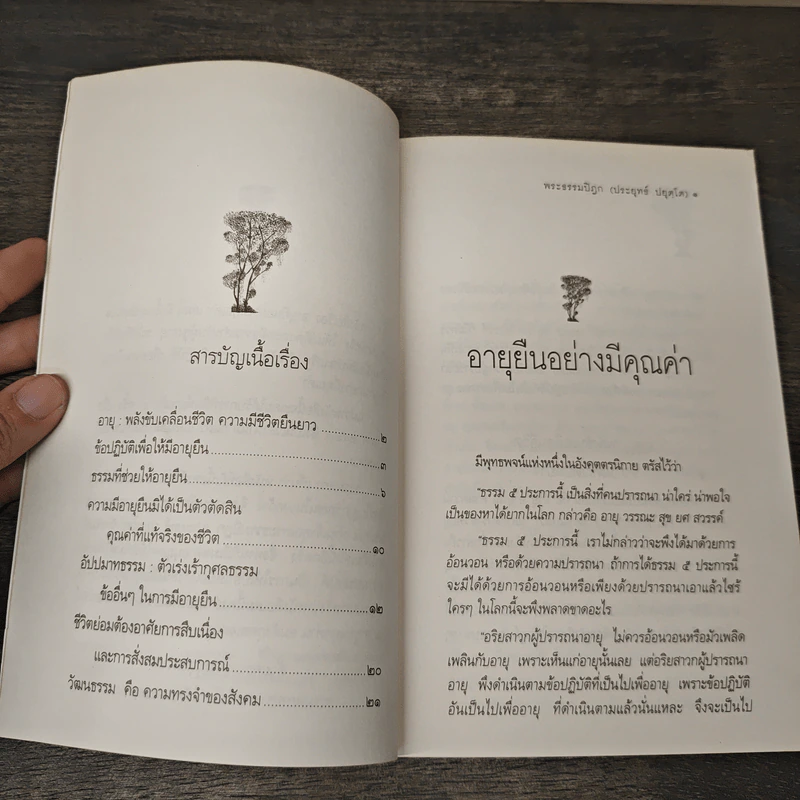 สารบัญเนื้อเรื่อง
อายุ : พลังขับเคลื่อนชีวิต ความมีชีวิตยืนยาว ๒
ข้อปฏิบัติเพื่อให้มีอายุยืน ๓
ธรรมที่ช่วยให้อายุยืน ๖
ความมีอายุยืนมิได้เป็นตัวตัดสิน
คุณค่าที่แท้จริงของชีวิต ๑๐
อัปปมาทธรรม : ตัวเร่งเร้ากุศลธรรม
ข้ออื่นๆ ในการมีอายุยืน ๑๒
ชีวิตย่อมต้องอาศัยการสืบเนื่อง
และการสั่งสมประสบการณ์ ๒๐
วัฒนธรรม คือ ความทรงจำของสังคม ๒๑
พระธรรมปิฎก (ประยุทธ์ ปยุตฺโต) ๑
อายุยืนอย่างมีคุณค่า
มีพุทธพจน์แห่งหนึ่งในอังคุตตรนิกาย ตรัสไว้ว่า
"ธรรม ๕ ประการนี้ เป็นสิ่งที่คนปรารถนา น่าใคร่ น่าพอใจ
เป็นของหาได้ยากในโลก กล่าวคือ อายุ วรรณะ สุข ยศ สวรรค์
"ธรรม ๕ ประการนี้ เราไม่กล่าวว่าจะพึงได้มาด้วยการ
อ้อนวอน หรือด้วยความปรารถนา ถ้าการได้ธรรม ๕ ประการนี้
จะมีได้ด้วยการอ้อนวอนหรือเพียงด้วยปรารถนาเอาแล้วไซร้
ใครๆ ในโลกนี้จะพึงพลาดขาดอะไร
"อริยสาวกผู้ปรารถนาอายุ ไม่ควรอ้อนวอนหรือมัวเพลิด
เพลินกับอายุ เพราะเห็นแก่อายุนั้นเลย แต่อริยสาวกผู้ปรารถนา
อายุ พึงดำเนินตามข้อปฏิบัติที่เป็นไปเพื่ออายุ เพราะข้อปฏิบัติ
อันเป็นไปเพื่ออายุ ที่ดำเนินตามแล้วนั่นแหละ จึงจะเป็นไป